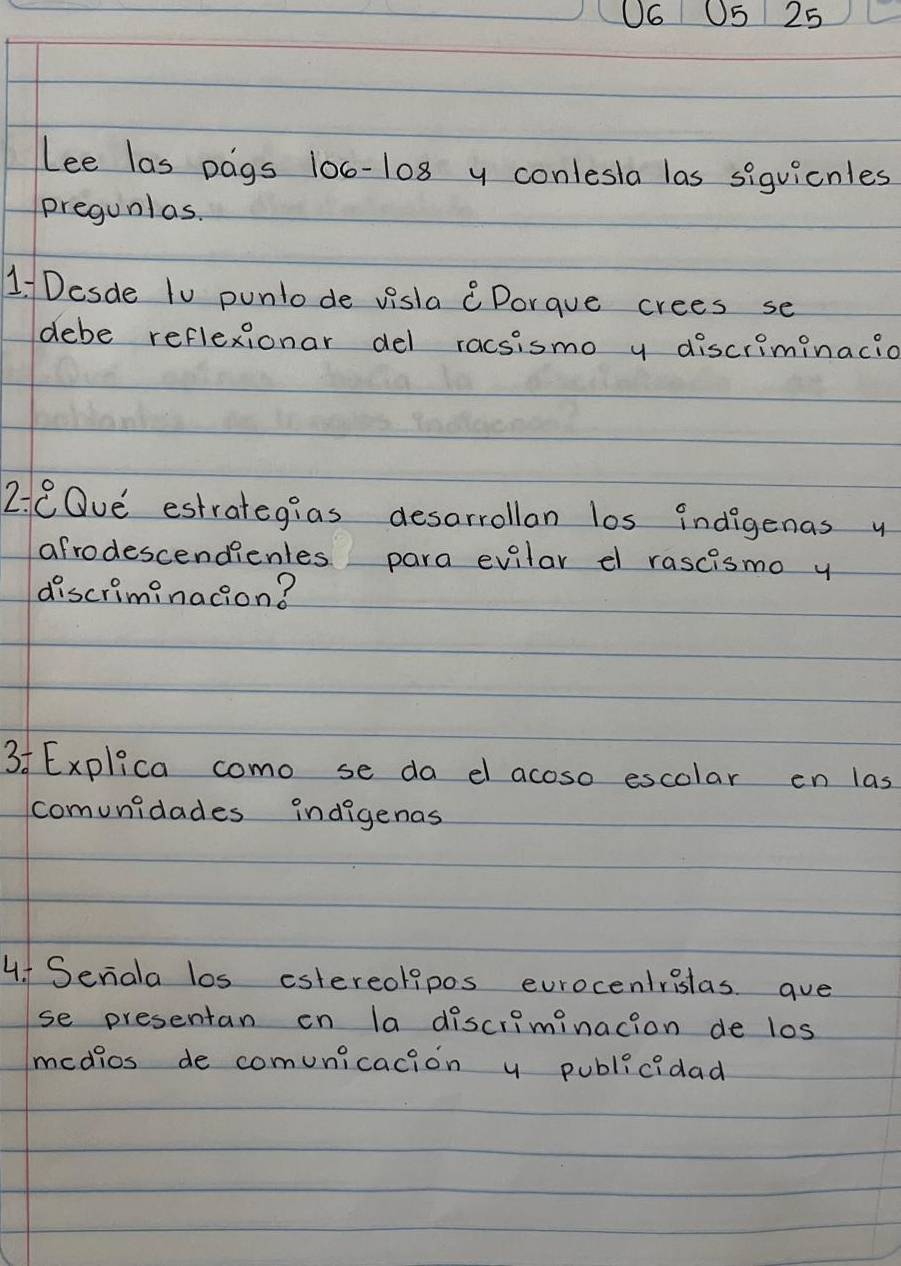 06 05 25
Lee las págs 106-108 y contesta las siguientes
preguntas.
1.- Desde tu punto de vista ¿Porque crees se
debe reflexionar del racsismo y discriminacio
2.- ¿Qué estrategias desarrollan los indigenas y
afrodescendientes para evitar el rascismo y
discriminacion?
3.- Explica como se da el acoso escolar en las
comunidades indigenas
4.- Señala los estereotipos eurocentristas. que
se presentan en la discriminacion de los
medios de comunicación y publicidad